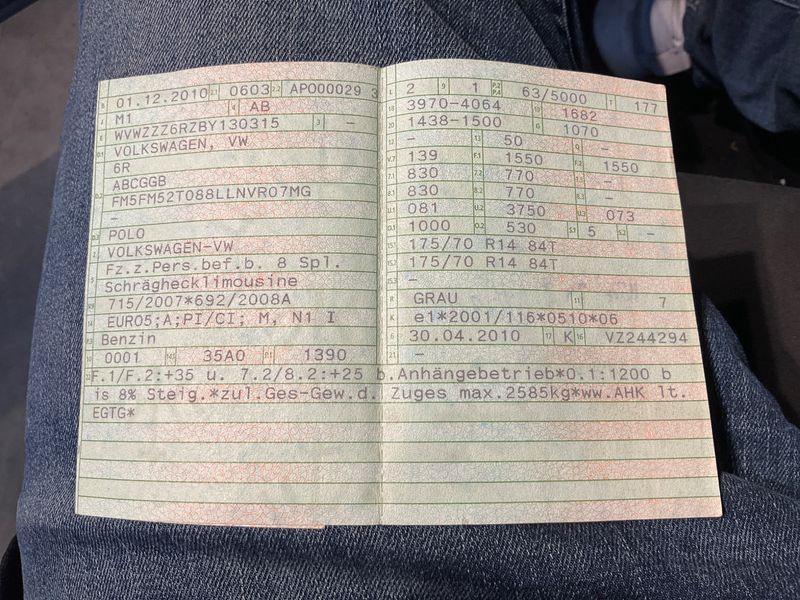 B 01.12.2010 2.1 0603 2.2 APO00029 3
M1 4 AB
WVWZZZ6RZBY130315 3 –
VOLKSWAGEN, VW
6R
ABCGGB
FM5FM52T088LLNVR07MG
–
POLO
VOLKSWAGEN-VW
Fz.z.Pers.bef.b. 8 Spl.
Schräghecklimousine
715/2007*692/2008A
EURO5;A;PI/CI; M, N1 I
Benzin
0001 35A0 P.1 1390
L 2 9 1 P.2 P.4 63/5000 T 177
18 3970-4064 19 1682
20 1438-1500 G 1070
– 13 50 Q –
V.7 139 F.1 1550 F.2 1550
7.1 830 7.2 770 7.3 –
8.1 830 8.2 770 8.3 –
U.1 081 U.2 3750 U.3 073
O.1 1000 O.2 530 S.1 5 S.2 –
15.1 175/70 R14 84T
15.2 175/70 R14 84T
15.3 –
R GRAU 11 7
K e1*2001/116*0510*06
6 30.04.2010 17 K 16 VZ244294
21 –
F.1/F.2:+35 u. 7.2/8.2:+25 b.Anhängebetrieb*O.1:1200 b
is 8% Steig.*zul.Ges-Gew.d. Zuges max.2585kg*ww.AHK lt.
EGTG*